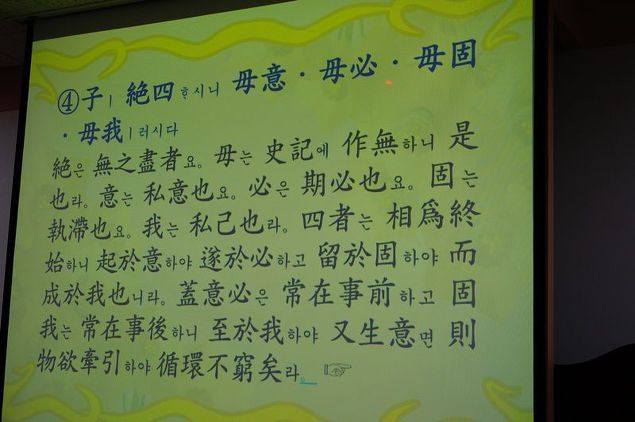 ④子ㅣ 絶四ᄒᆞ시니 毋意·毋必·毋固
·毋我ㅣ러시다
絶은 無之盡者요. 毋는 史記에 作無하니 是
也라. 意는 私意也요. 必은 期必也요. 固는
執滯也요. 我는 私己也라. 四者는 相爲終
始하니 起於意하야 遂於必하고 留於固하야 而
成於我也니라. 蓋意必은 常在事前하고 固
我는 常在事後하니 至於我하야 又生意면 則
物欲牽引하야 循環不窮矣라